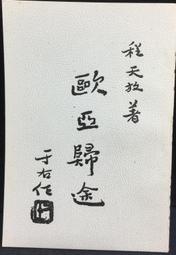 程天放著
歐亞歸途
于右任